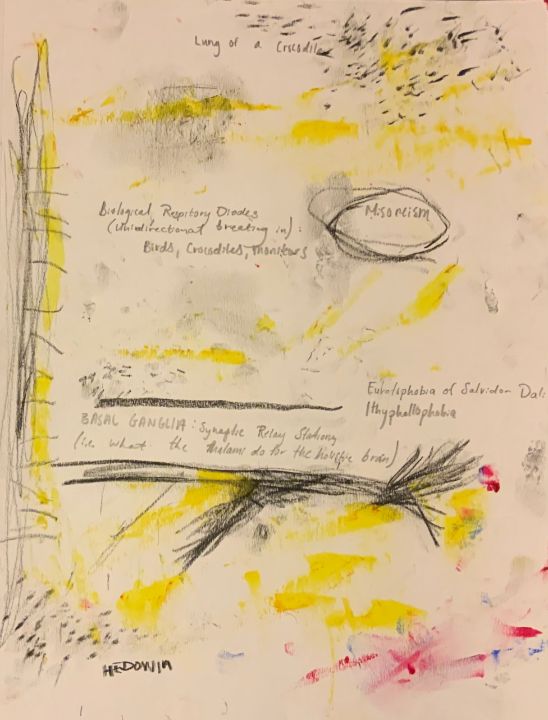 Lung of a Crocodile
Biological Respitory Diodes
(Unidirectional breating in):
Birds, Crocodiles, monitors
Misoneism
Eurotophobia of Salvidor Dali
Ithyphallophobia
BASAL GANGLIA: Synaptic Relay Stations
(i.e. what the thalami do for the holistic brain)
HEDOWIN